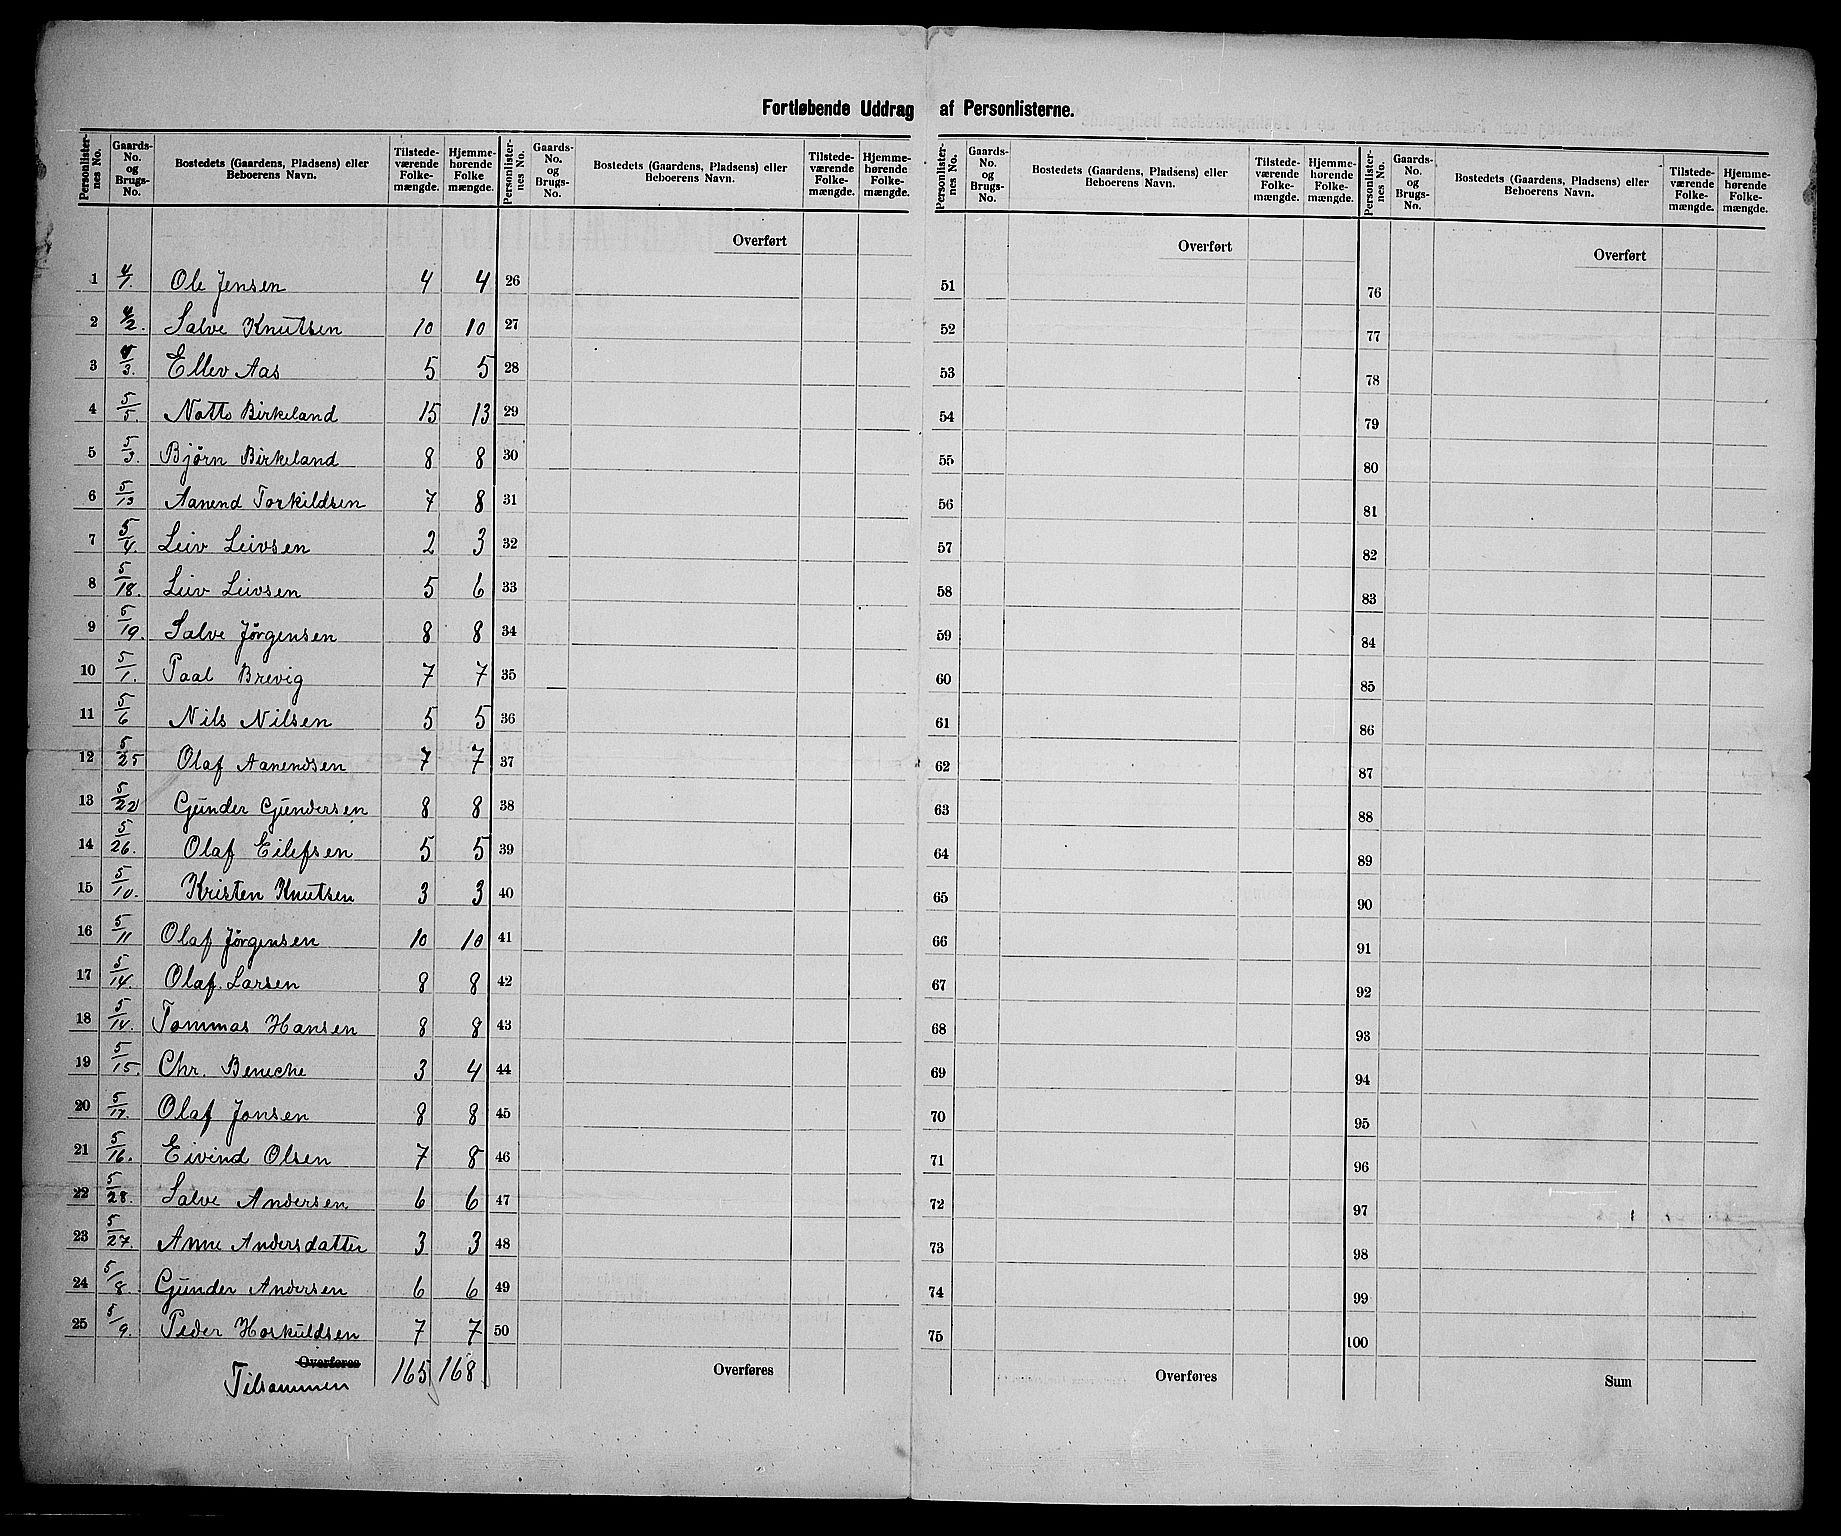 Fortløbende Uddrag af Personlisterne.
Personlister-nes No. Gaards-No. og Brugs-No. Bostedets (Gaardens, Pladsens) eller Beboerens Navn. Tilstede-værende Folke-mængde. Hjemme-hørende Folke mængde.
1 4/1. Ole Jensen 4 4
2 4/2. Salve Knutsen 10 10
3 4/3. Ellev Aas 5 5
4 5/5. Notto Birkeland 15 13
5 5/3. Bjørn Birkeland 8 8
6 5/13 Aanend Torkildsen 7 8
7 5/4. Leiv Leivsen 2 3
8 5/18. Leiv Leivsen 5 6
9 5/19. Salve Jørgensen 8 8
10 5/1. Paal Brevig 7 7
11 5/6 Nils Nilsen 5 5
12 5/25 Olaf Aanendsen 7 7
13 5/22 Gunder Gundersen 8 8
14 5/26. Olaf Eilefsen 5 5
15 5/10. Kristen Knutsen 3 3
16 5/11 Olaf Jørgensen 10 10
17 5/14. Olaf Larsen 8 8
18 Tommas Hansen 8 8
19 5/15. Chr. Beneche 3 4
20 5/17. Olaf Jonsen 8 8
21 5/16. Eivind Olsen 7 8
22 5/28. Salve Andersen 6 6
23 5/27. Anne Andersdatter 3 3
24 5/8. Gunder Andersen 6 6
25 5/9. Peder Horkuldsen 7 7
Overføres
Tilsammen 165 168
Personlister-nes No. Gaards-No. og Brugs-No. Bostedets (Gaardens, Pladsens) eller Beboerens Navn. Tilstede-værende Folke-mængde. Hjemme-hørende Folke-mængde.
Overført
26
27
28
29
30
31
32
33
34
35
36
37
38
39
40
41
42
43
44
45
46
47
48
49
50
Overføres
Personlister-nes No. Gaards-No. og Brugs-No. Bostedets (Gaardens, Pladsens) eller Beboerens Navn. Tilstede-værende Folke-mængde. Hjemme-hørende Folke-mængde.
Overført
51
52
53
54
55
56
57
58
59
60
61
62
63
64
65
66
67
68
69
70
71
72
73
74
75
Overføres
Personlister-nes No. Gaards-No. og Brugs-No. Bostedets (Gaardens, Pladsens) eller Beboerens Navn. Tilstede-værende Folke-mængde. Hjemme-hørende Folke-mængde.
Overført
76
77
78
79
80
81
82
83
84
85
86
87
88
89
90
91
92
93
94
95
96
97
98
99
100
Sum